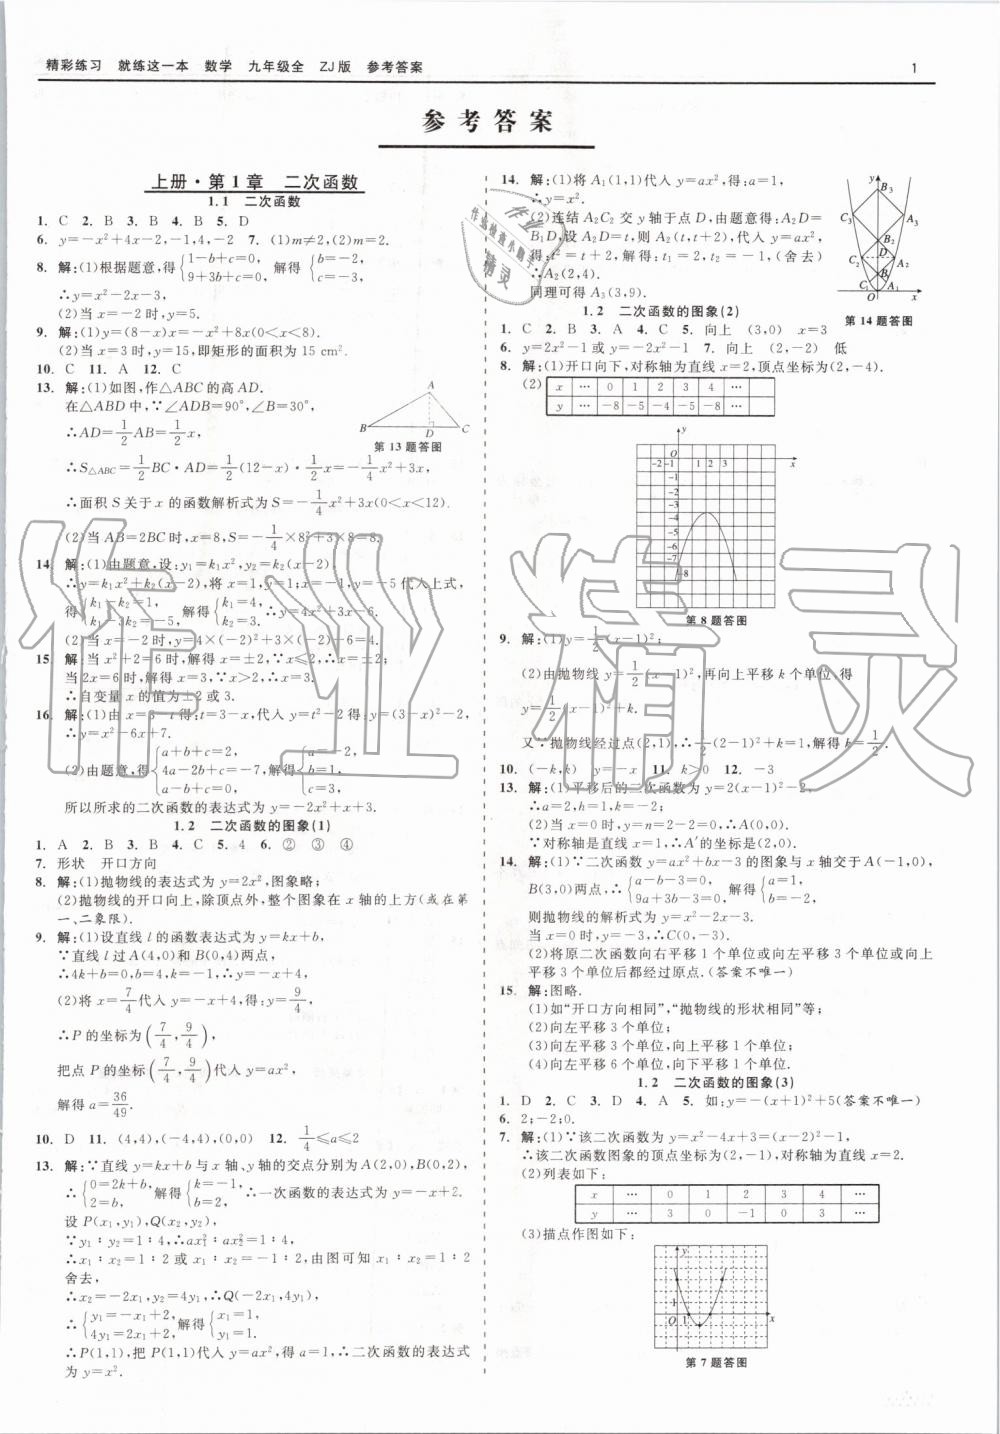 精彩练习 就练这一本 数学 九年级全 ZJ版 参考答案 1
参考答案
上册·第1章 二次函数
1.1 二次函数
1. C 2. B 3. B 4. B 5. D
6. y=-x²+4x-2,-1,4,-2 7. (1)m≠2,(2)m=2.
8. 解:(1)根据题意,得{1-b+c=0, 9+3b+c=0, 解得{b=-2, c=-3,
∴y=x²-2x-3,
(2)当x=-2时,y=5.
9. 解:(1)y=(8-x)x=-x²+8x(0<x<8).
(2)当x=3时,y=15,即矩形的面积为15 cm².
10. C 11. A 12. C
13. 解:(1)如图,作△ABC的高AD.
在△ABD中,∵∠ADB=90°,∠B=30°,
∴AD=1/2AB=1/2x,
A B D C
第13题答图
∴S△ABC=1/2BC·AD=1/2(12-x)·1/2x=-1/4x²+3x,
∴面积S关于x的函数解析式为S=-1/4x²+3x(0<x<12).
(2)当AB=2BC时,x=8,S=-1/4×8²+3×8=8.
14. 解:(1)由题意,设:y₁=k₁x²,y₂=k₂(x-2),
∴y=k₁x²+k₂(x-2),将x=1,y=1;x=-1,y=-5代入上式,
得{k₁-k₂=1, k₁-3k₂=-5, 解得{k₁=4, k₂=3, ∴y=4x²+3x-6.
(2)当x=-2时,y=4×(-2)²+3×(-2)-6=4.
15. 解:当x²+2=6时,解得x=±2,∵x≤2,∴x=±2;
当2x=6时,解得x=3,∵x>2,∴x=3.
∴自变量x的值为±2或3.
16. 解:(1)由x=3-t得:t=3-x,代入y=t²-2得:y=(3-x)²-2,
∴y=x²-6x+7.
(2)由题意,得{a+b+c=2, 4a-2b+c=-7, c=3, 解得{a=-2, b=1, c=3,
所以所求的二次函数的表达式为y=-2x²+x+3.
1.2 二次函数的图象(1)
1. A 2. B 3. B 4. C 5. 4 6. ② ③ ④
7. 形状 开口方向
8. 解:(1)抛物线的表达式为y=2x²,图象略;
(2)抛物线的开口向上,除顶点外,整个图象在x轴的上方(或在第
一、二象限).
9. 解:(1)设直线l的函数表达式为y=kx+b,
∵直线l过A(4,0)和B(0,4)两点,
∴4k+b=0,b=4,k=-1,∴y=-x+4,
(2)将x=7/4代入y=-x+4,得:y=9/4,
∴P的坐标为(7/4,9/4),
把点P的坐标(7/4,9/4)代入y=ax²,
解得a=36/49.
10. D 11. (4,4),(-4,4),(0,0) 12. 1/4≤a≤2
13. 解:∵直线y=kx+b与x轴、y轴的交点分别为A(2,0),B(0,2),
∴{0=2k+b, 2=b, 解得{k=-1, b=2. ∴一次函数的表达式为y=-x+2.
设P(x₁,y₁),Q(x₂,y₂),
∵y₁∶y₂=1∶4,∴ax₁²∶ax₂²=1∶4,
∴x₁∶x₂=1∶2或x₁∶x₂=-1∶2,由图可知x₁∶x₂=1∶2
舍去,
∴x₂=-2x₁,y₂=4y₁,∴Q(-2x₁,4y₁),
∴{y₁=-x₁+2, 4y₁=2x₁+2, 解得{x₁=1, y₁=1.
∴P(1,1),把P(1,1)代入y=ax²,得a=1,∴二次函数的表达式
为y=x².
14. 解:(1)将A₁(1,1)代入y=ax²,得:a=1,
∴y=x².
(2)连结A₂C₂交y轴于点D,由题意得:A₂D=
B₁D,设A₂D=t,则A₂(t,t+2),代入y=ax²,得:
t²=t+2,解得:t₁=2,t₂=-1,(舍去)
∴A₂(2,4).
同理可得A₃(3,9).
y B₃ C₃ A₃ B₂ C₂ D A₂ B₁ C₁ A₁ O x
第14题答图
1.2 二次函数的图象(2)
1. C 2. B 3. A 4. C 5. 向上 (3,0) x=3
6. y=2x²-1或y=-2x²-1 7. 向上 (2,-2) 低
8. 解:(1)开口向下,对称轴为直线x=2,顶点坐标为(2,-4).
(2) x … 0 1 2 3 4 …
y … -8 -5 -4 -5 -8 …
y O -2 -1 1 2 3 x -1 -2 -3 -4 -5 -6 -7 -8
第8题答图
9. 解:(1)y=1/2(x-1)²;
(2)由抛物线y=1/2(x-1)²,再向上平移k个单位,得
y=1/2(x-1)²+k.
又∵抛物线经过点(2,1),∴1/2(2-1)²+k=1,解得k=1/2.
10. (-k,k) y=-x 11. k>0 12. -3
13. 解:(1)平移后的二次函数为y=2(x-1)²-2,
∴a=2,h=1,k=-2;
(2)当x=0时,y=n=2-2=0,∴A(0,0).
∵对称轴是直线x=1,∴A′的坐标为(2,0).
14. 解:(1)∵二次函数y=ax²+bx-3的图象与x轴交于A(-1,0),
B(3,0)两点,∴{a-b-3=0, 9a+3b-3=0, 解得{a=1, b=-2,
则抛物线的解析式为y=x²-2x-3.
当x=0时,y=-3,∴C(0,-3).
(2)将原二次函数向右平移1个单位或向左平移3个单位或向上
平移3个单位后都经过原点.(答案不唯一)
15. 解:图略.
(1)如“开口方向相同”,“抛物线的形状相同”等;
(2)向左平移3个单位;
(3)向左平移3个单位,向上平移1个单位;
(4)向左平移6个单位,向下平移1个单位.
1.2 二次函数的图象(3)
1. D 2. C 3. D 4. A 5. 如:y=-(x+1)²+5(答案不唯一)
6. 2;-2;0.
7. 解:(1)∵该二次函数为y=x²-4x+3=(x-2)²-1,
∴该二次函数图象的顶点坐标为(2,-1),对称轴为直线x=2.
(2)列表如下:
x … 0 1 2 3 4 …
y … 3 0 -1 0 3 …
(3)描点作图如下:
y 1 O 1 x
第7题答图
作业精灵